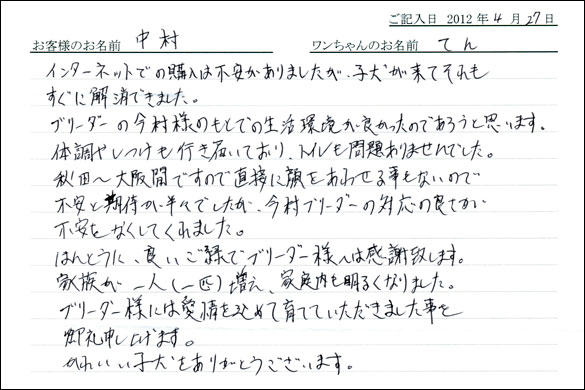 ご記入日 2012年4月27日
お客様のお名前 中村 ワンちゃんのお名前 てん
インターネットでの購入は不安がありましたが、子犬が来てそれも
すぐに解消できました。
ブリーダーの今村様のもとでの生活環境が良かったのであろうと思います。
体調やしつけも行き届いており、トイレも問題ありませんでした。
秋田〜大阪間ですので直接に顔をあわせる事もないので
不安と期待が半々でしたが、今村ブリーダーの対応の良さが
不安をなくしてくれました。
ほんとうに、良いご縁でブリーダー様へは感謝致します。
家族が一人(一匹)増え、家庭内も明るくなりました。
ブリーダー様には愛情をこめて育てていただきました事を
御礼申し上げます。
かわいい子犬をありがとうございます。